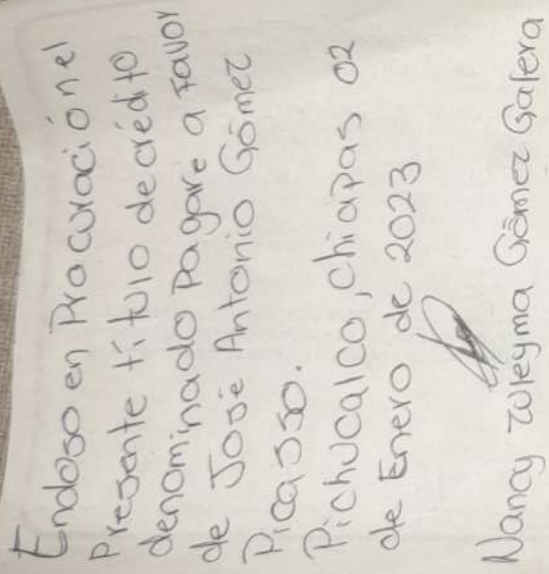 Endoso en Procuración el
Presente título de crédito
denominado Pagare a Favor
de José Antonio Gómez
Picasso.
Pichucalco, Chiapas 02
de Enero de 2023
Nancy Zuleyma Gómez Galera